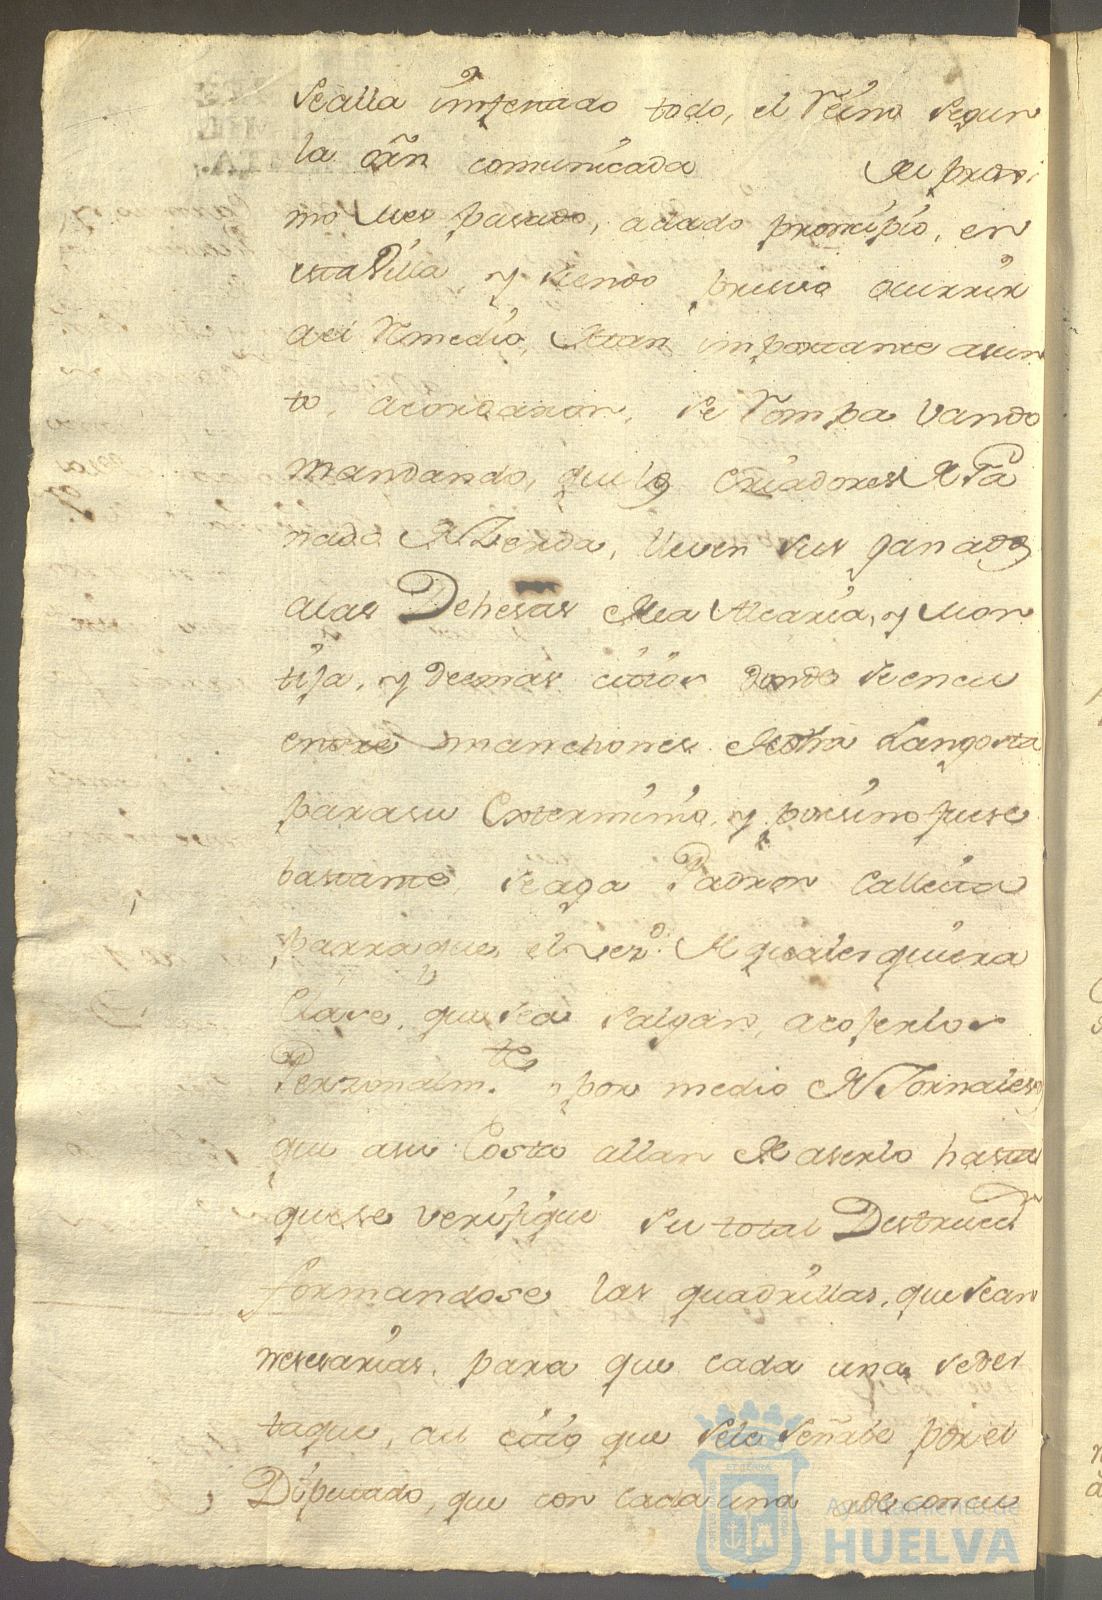 sealla imfestado todo, el Reino segun
la orn comunicada del proxi
mo Mes pasado, adado prinsipio, en
esta Villa, y siendo presiso ocurrir
al Remedio, de tan importante asun
to, acordaron, se Rompa Vando
mandando, que los Criadores de Ga
nado de Zerda, lleven sus ganados
alas Dehesas de la Alcaria, y Mon
tija, y demas citios donde se encu
entre manchones de dha Langosta
parasu Extermimio, y por si no fuese
bastante, seaga Padron Calleita
parra que, el Vezº de qualesquiera
Clase, que sea salgan, acojerlos
Perzonalmte y por medio de Jornales,
que asu Costa allan de aserlo hasta
quese verifique su total Destrucn
formandose las quadrillas, que sean
nesesarias, para que cada una sedes
taque, al citio que sele señale por el
Diputado, que con cada una de concu
Ayuntamiento de
HUELVA